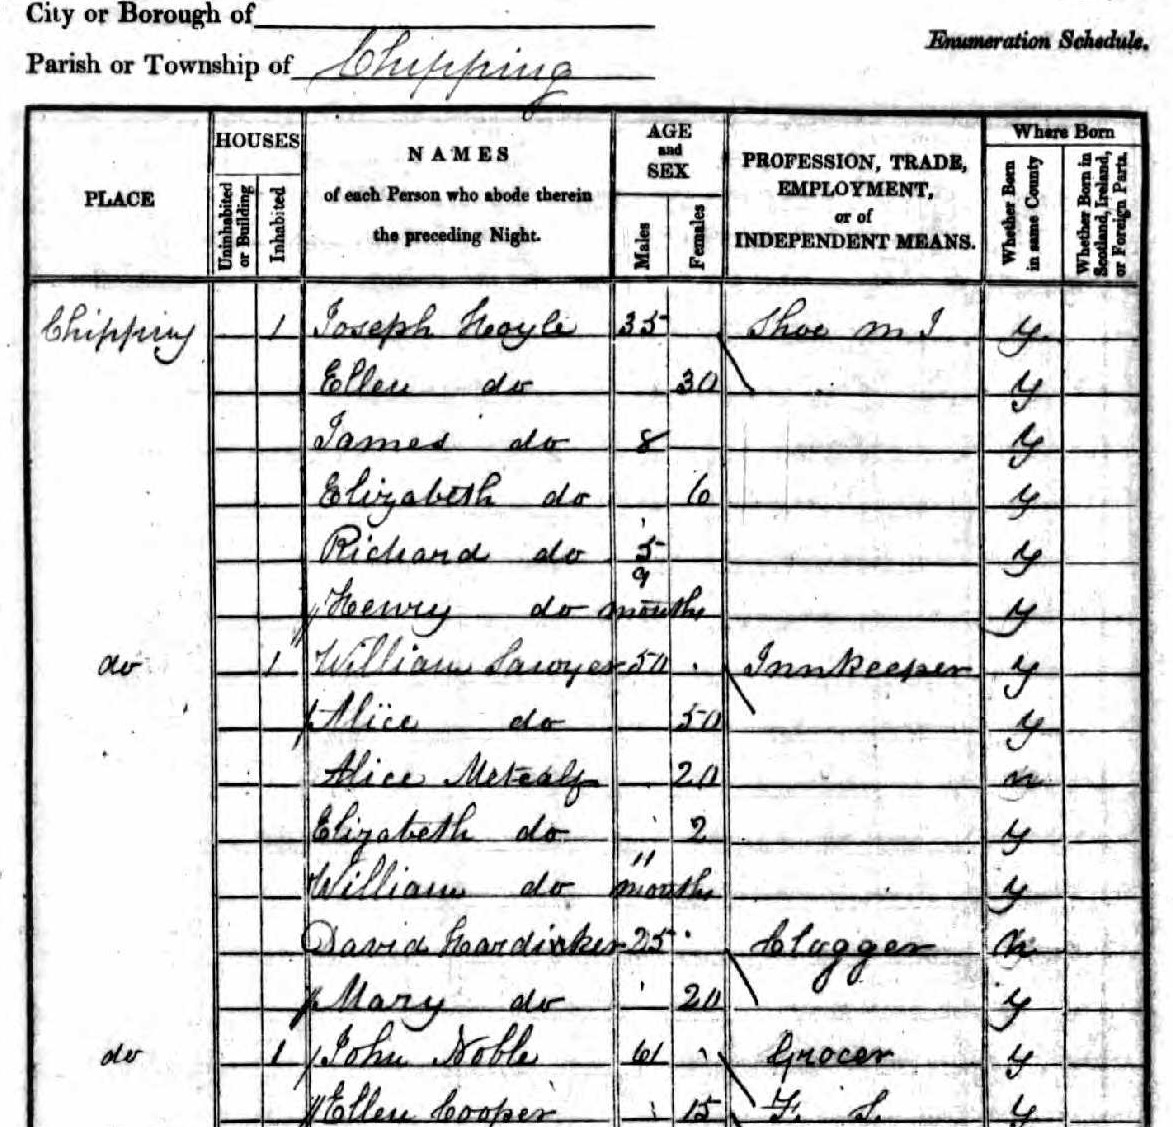 City or Borough of
Enumeration Schedule.
Parish or Township of Chipping
PLACE
HOUSES
Uninhabited or Building
Inhabited
NAMES
of each Person who abode therein
the preceding Night.
AGE
and
SEX
Males
Females
PROFESSION, TRADE,
EMPLOYMENT,
or of
INDEPENDENT MEANS.
Where Born
Whether Born in same County
Whether Born in Scotland, Ireland, or Foreign Parts.
Chipping 1 Joseph Hoyle 35 Shoe m J y
Ellen do 30 y
James do 8 y
Elizabeth do 6 y
Richard do 5 y
Henry do 9 months y
do 1 William Sawyer 50 Innkeeper y
Alice do 50 y
Alice Metcalf 20 n
Elizabeth do 2 y
William do 11 months y
David Hardicker 25 Clogger n
Mary do 20 y
do 1 John Noble 61 Grocer y
Ellen Cooper 15 F. S. y